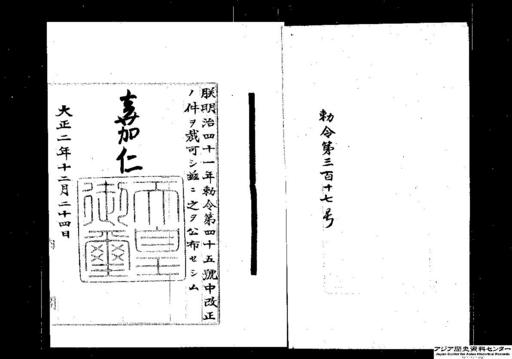 勅令第三百十七号
朕明治四十一年勅令第四十五號中改正
ノ件ヲ裁可シ茲ニ之ヲ公布セシム
嘉仁
天皇御璽
大正二年十二月二十四日
アジア歴史資料センター
Japan Center for Asian Historical Records